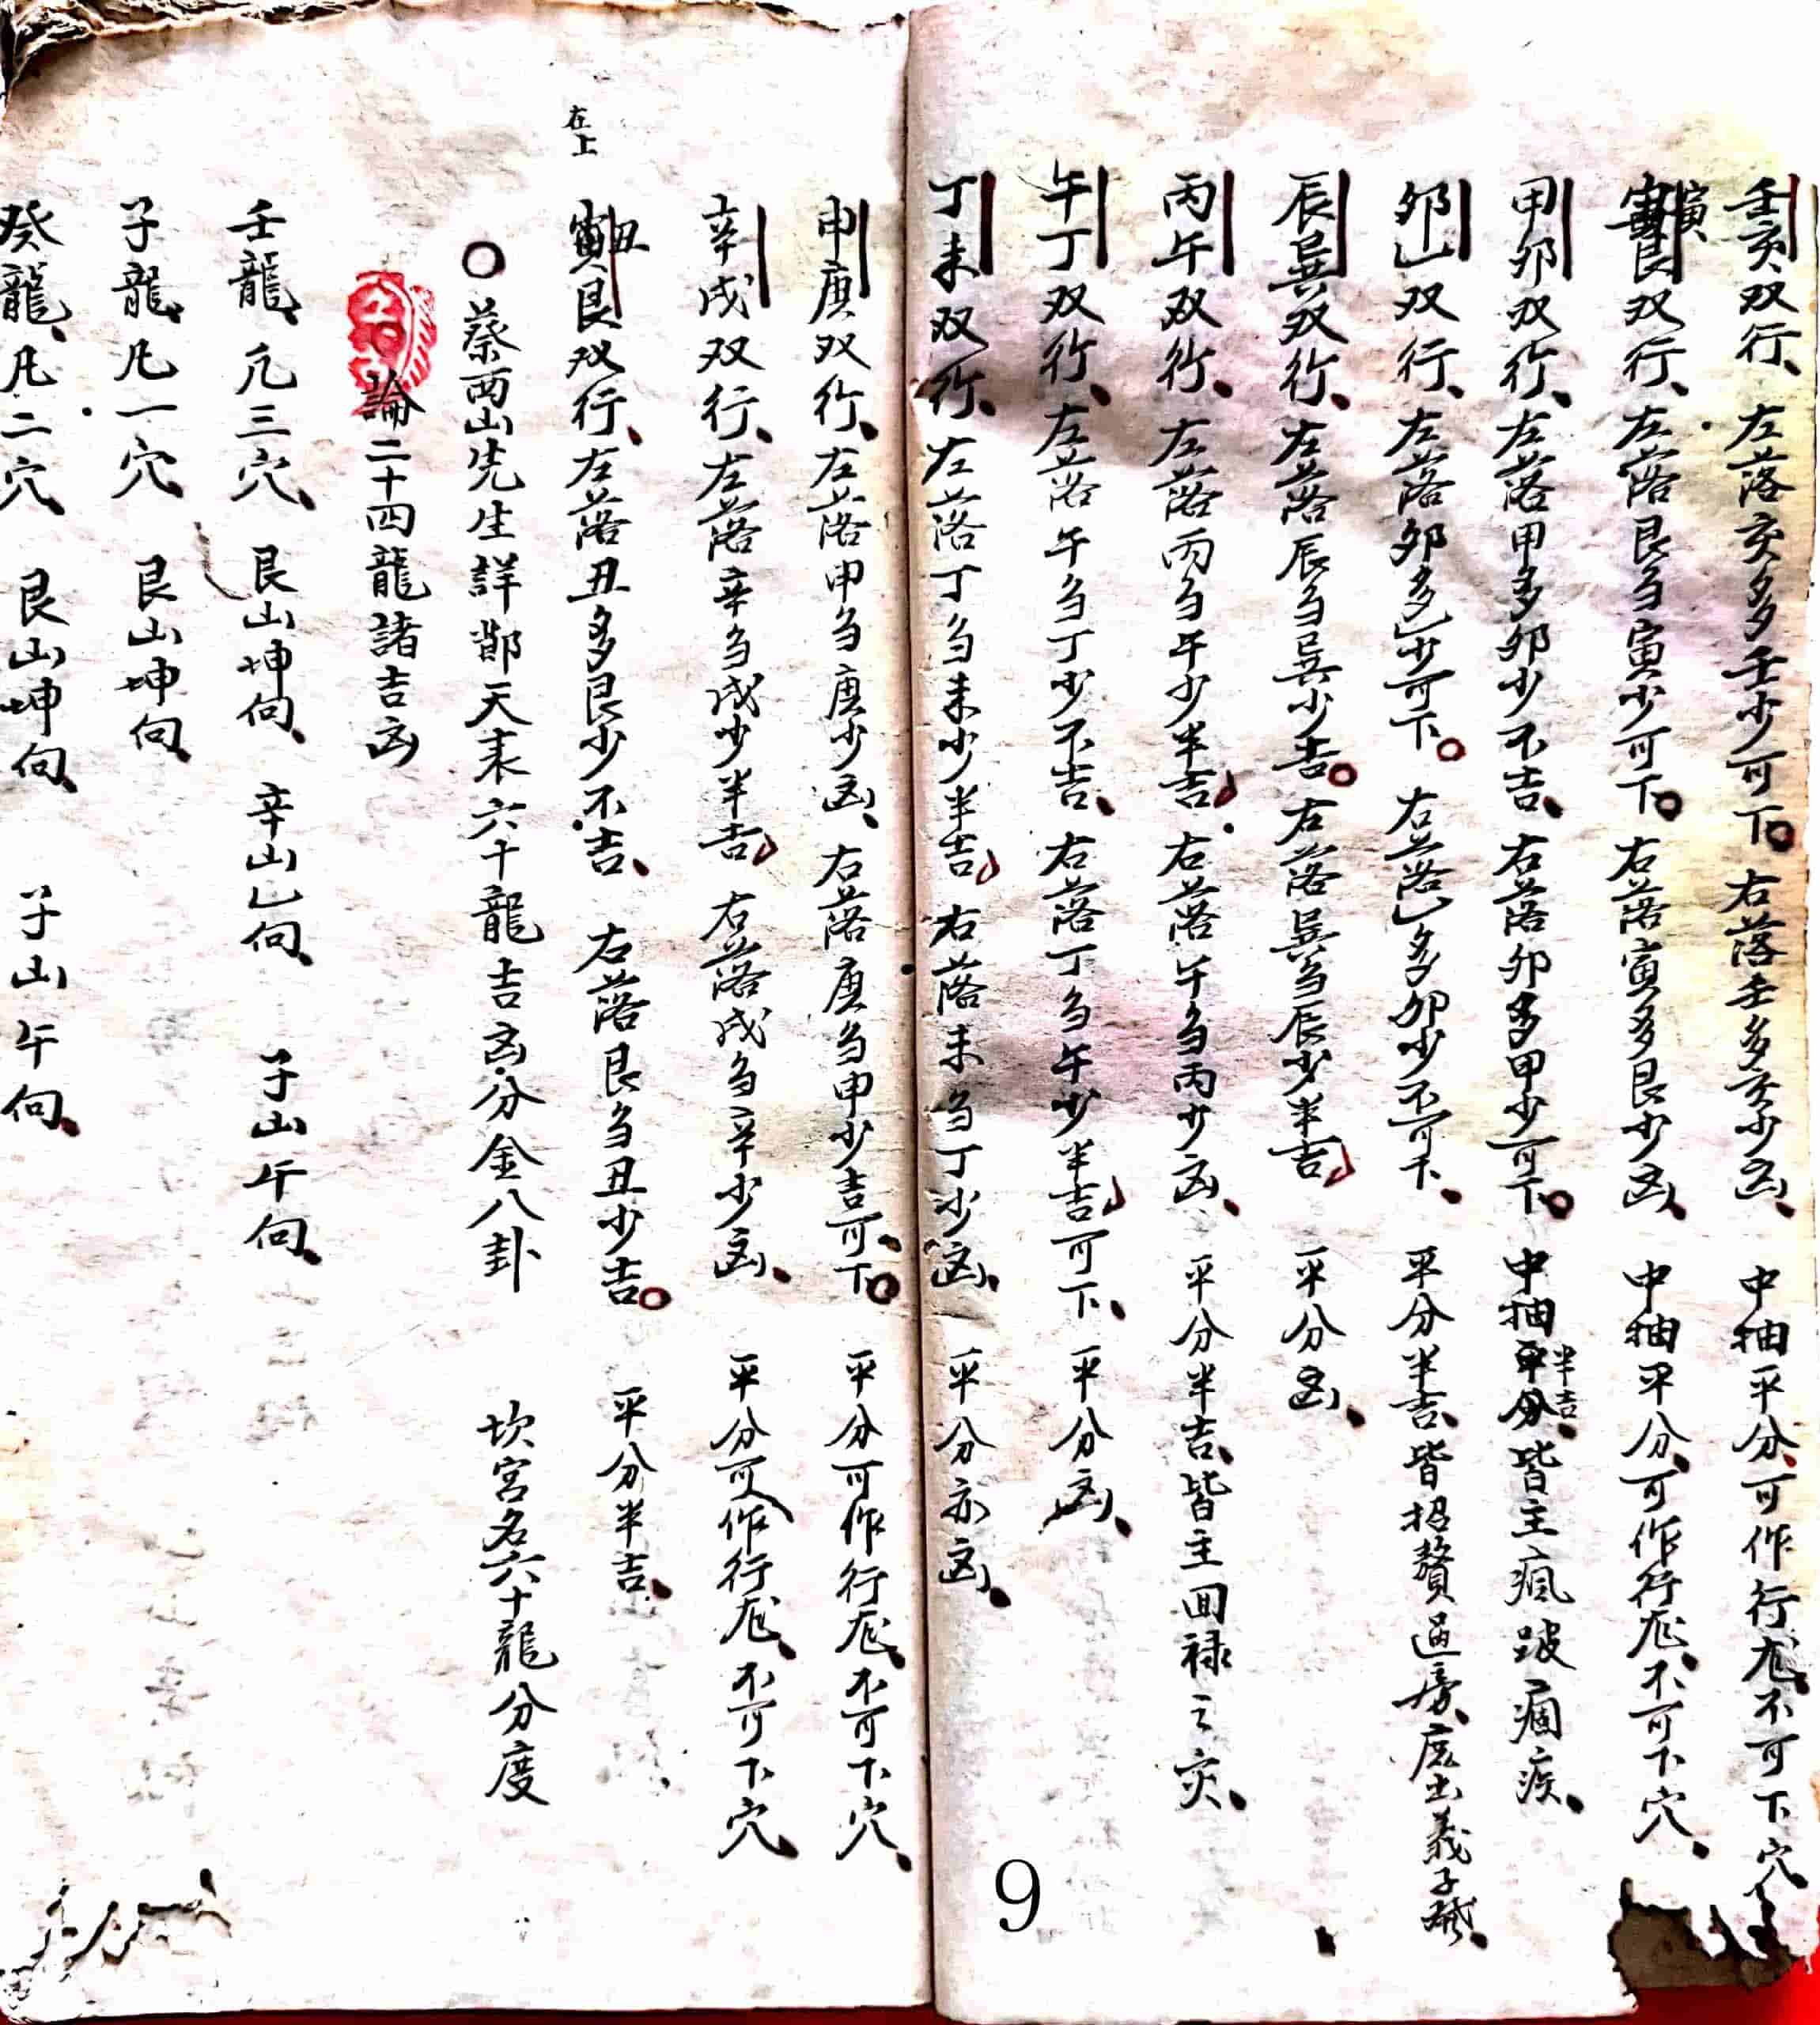 壬亥双行、左落亥多壬少可下。右落壬多亥少凶、中抽平分、可作行龙、不可下穴、
寅艮双行、左落艮多寅少可下。右落寅多艮少凶、中抽平分、可作行龙、不可下穴、
甲卯双行、左落甲多卯少不吉、右落卯多甲少可下。中抽平分半吉、皆主瘋跛痼疾、
卯乚双行、左落卯多乚少可下。右落乚多卯少不可下、平分半吉、皆招贅過房、庶出義子
辰巽双行、左落辰多巽少吉。右落巽多辰少半吉、平分凶、
丙午双行、左落丙多午少半吉、右落午多丙少凶、平分半吉、皆主囬禄之灾、
午丁双行、左落午多丁少不吉、右落丁多午少半吉可下、平分凶、
丁未双行、左落丁多未少半吉、右落未多丁少凶、平分亦凶、
9
申庚双行、左落申多庚少凶、右落庚多申少吉可下。平分可作行龙、不可下穴、
辛戌双行、左落辛多戌少半吉、右落戌多辛少凶、平分可作行龙、不可下穴、
在上
丑艮双行、左落丑多艮少不吉、右落艮多丑少吉。平分半吉、
○蔡西山先生詳鄀天表六十龍吉凶分金八卦 坎宮名六十龍分度
論二十四龍諸吉凶
壬龍、凡三穴、艮山坤向、辛山乚向、子山午向、
子龍、凡一穴、艮山坤向、
癸龍、凡二穴、艮山坤向、子山午向、